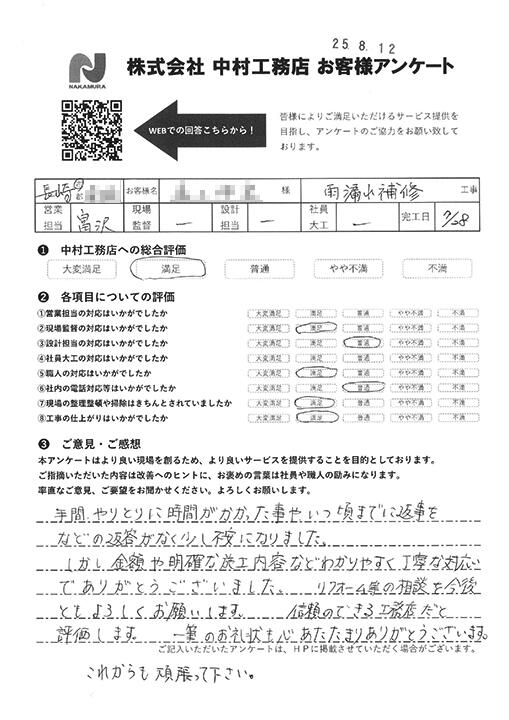 25.8.12
NAKAMURA
株式会社 中村工務店 お客様アンケート
WEBでの回答こちらから！
皆様によりご満足いただけるサービス提供を
目指し、アンケートのご協力をお願い致して
おります。
長崎 市 郡 お客様名 様 雨漏れ補修 工事
営業担当 富沢 現場監督 ー 設計担当 ー 社員大工 ー 完工日 7/28
❶ 中村工務店への総合評価
大変満足 満足 普通 やや不満 不満
❷ 各項目についての評価
①営業担当の対応はいかがでしたか 大変満足 満足 普通 やや不満 不満
②現場監督の対応はいかがでしたか 大変満足 満足 普通 やや不満 不満
③設計担当の対応はいかがでしたか 大変満足 満足 普通 やや不満 不満
④社員大工の対応はいかがでしたか 大変満足 満足 普通 やや不満 不満
⑤職人の対応はいかがでしたか 大変満足 満足 普通 やや不満 不満
⑥社内の電話対応等はいかがでしたか 大変満足 満足 普通 やや不満 不満
⑦現場の整理整頓や掃除はきちんとされていましたか 大変満足 満足 普通 やや不満 不満
⑧工事の仕上がりはいかがでしたか 大変満足 満足 普通 やや不満 不満
❸ ご意見・ご感想
本アンケートはより良い現場を創るため、より良いサービスを提供することを目的としております。
ご指摘いただいた内容は改善へのヒントに、お褒めの言葉は社員や職人の励みになります。
率直なご意見、ご要望をお聞かせください。よろしくお願いします。
年間、やりとりに時間がかかった事やいつ頃までに返事を
などの返答がなく少し不安になりました。
しかし金額や明確な施工内容などわかりやすく丁寧な対応
でありがとうございました。 リフォーム等の相談を今後
ともよろしくお願いします。 信頼のできる工務店だと
評価します 一筆のお礼状も心あたたまりありがとうございます。
ご記入いただいたアンケートは、HPに掲載させていただく場合がございます。
これからも頑張って下さい。